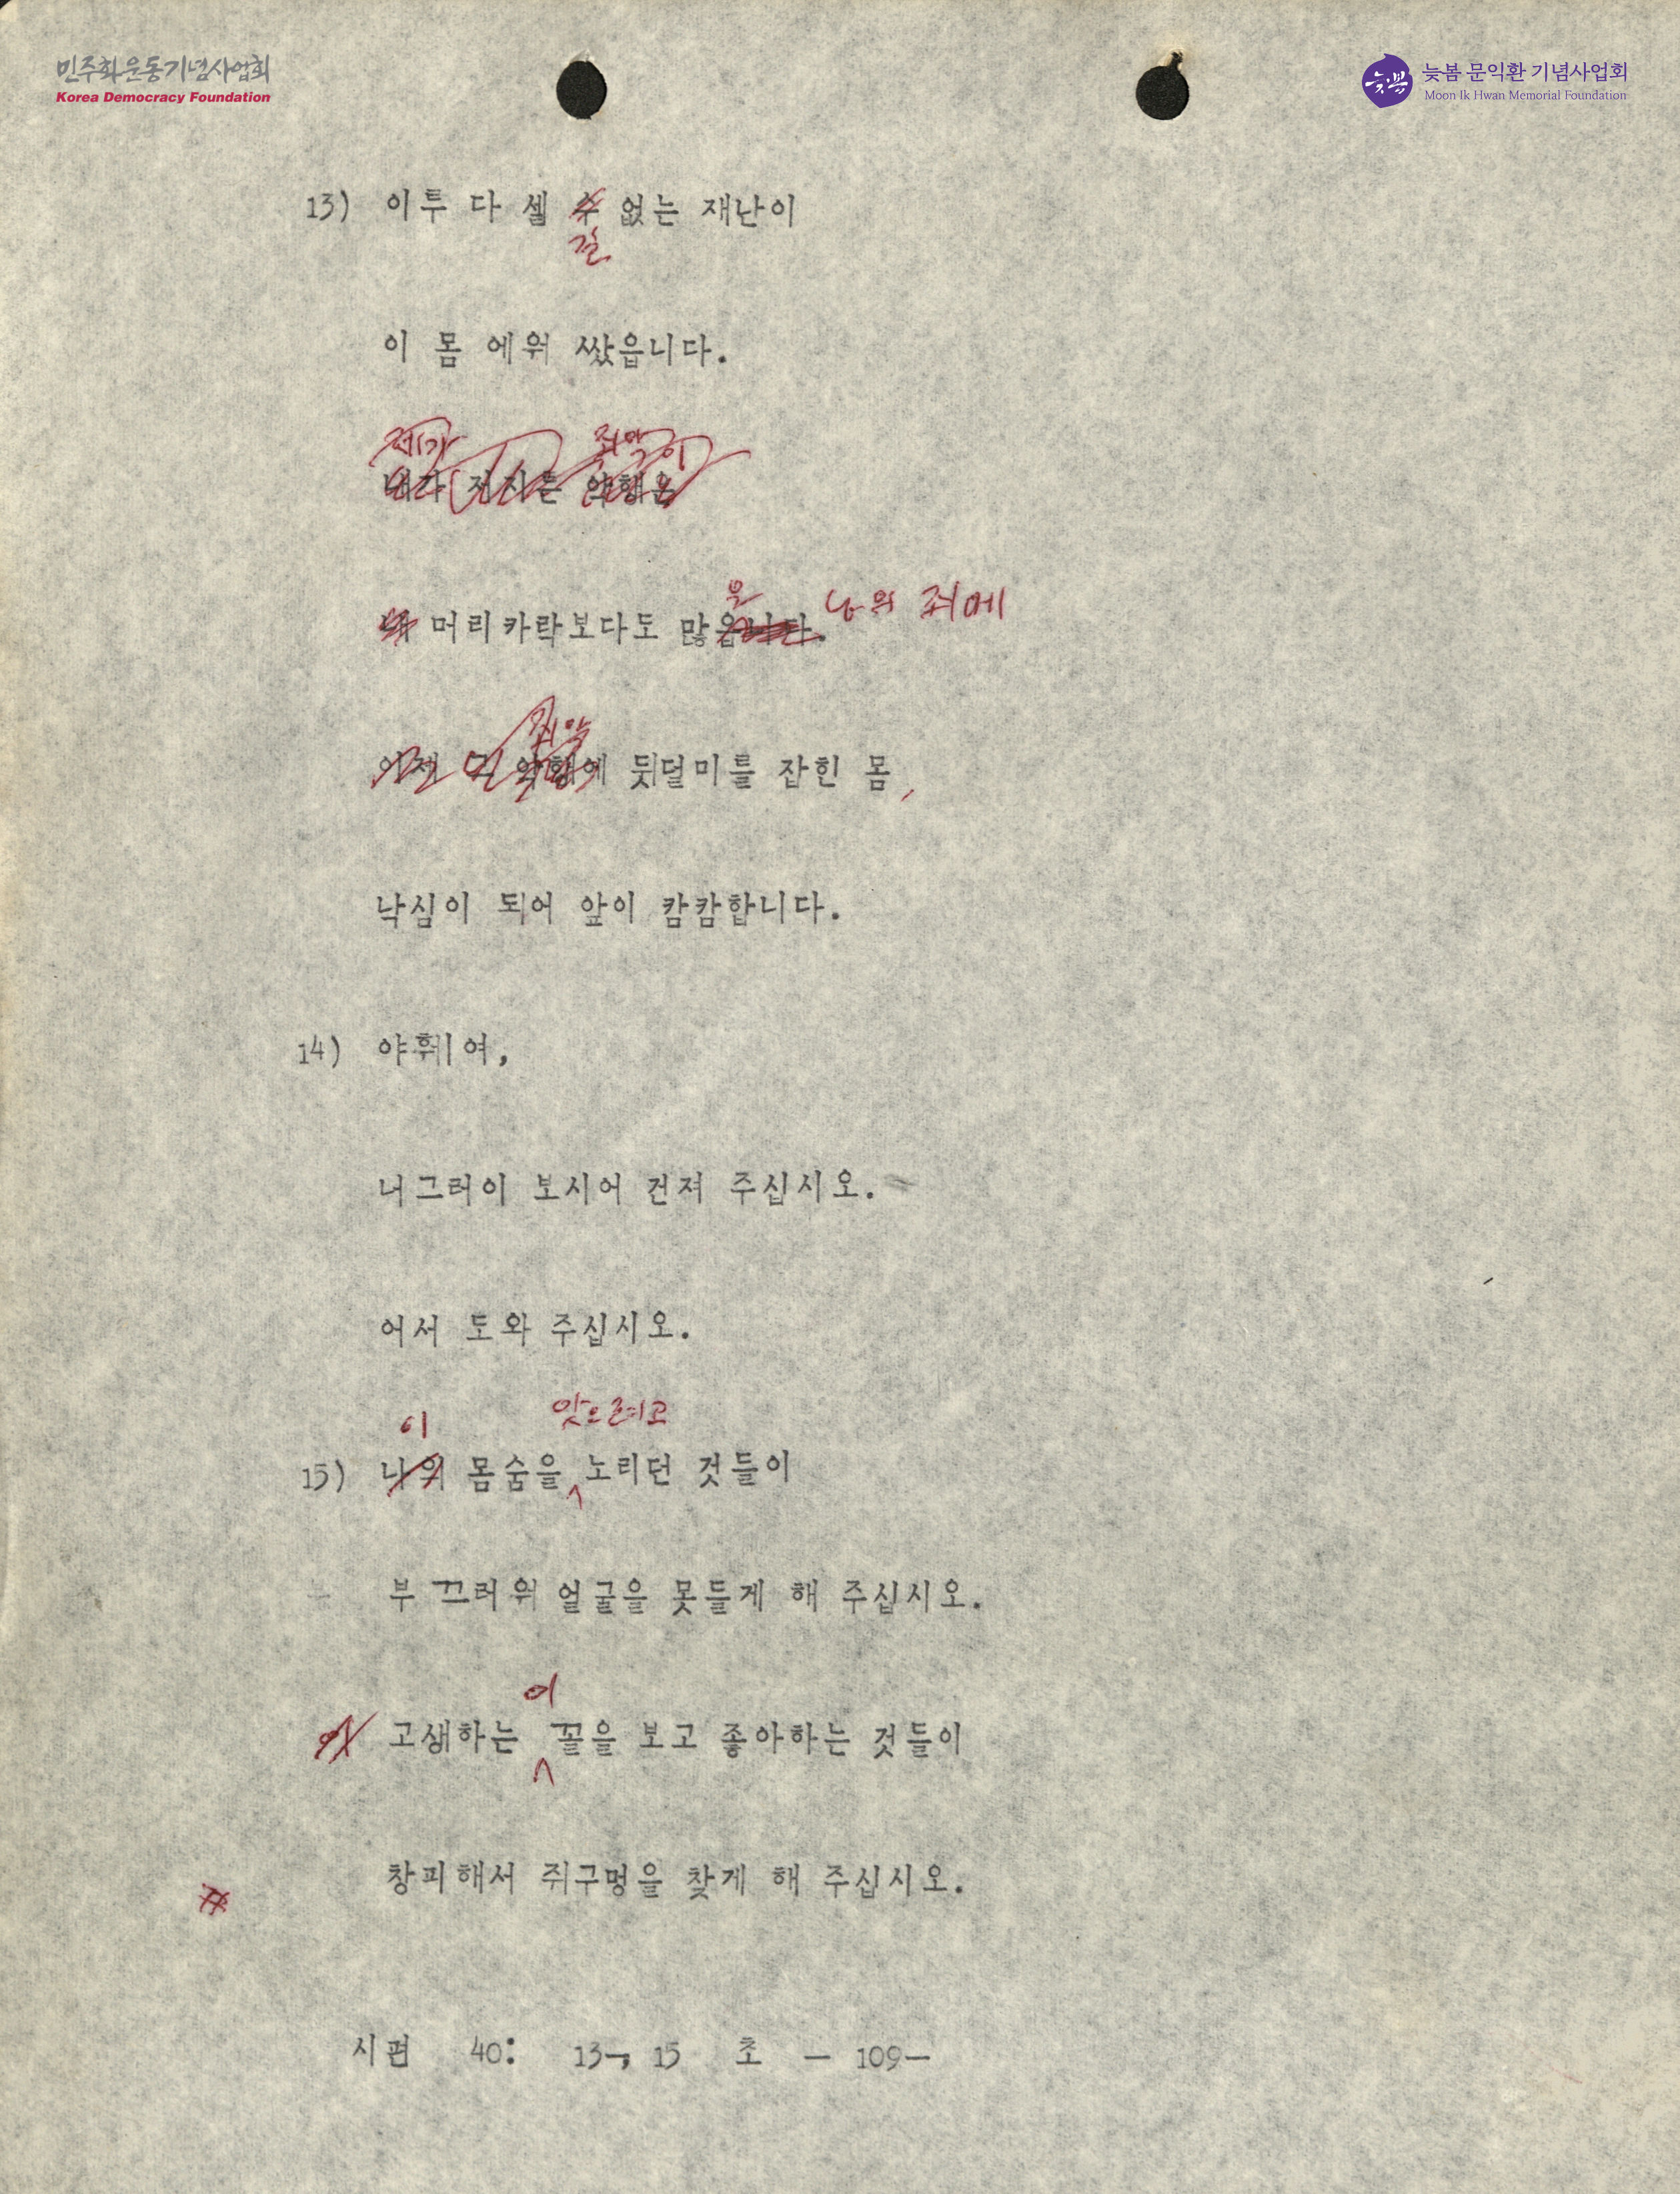 민주화운동기념사업회
Korea Democracy Foundation
늦봄
늦봄 문익환 기념사업회
Moon Ik Hwan Memorial Foundation
13) 이루 다 셀 수 없는 재난이
길
이 몸 에워 쌌읍니다.
제가 죄악이
내가 저지른 악행은
은 나의 죄에
내 머리카락보다도 많읍니다.
죄악
이제 그 악행에 뒷덜미를 잡힌 몸,
낙심이 되어 앞이 캄캄합니다.
14) 야훼여,
너그러이 보시어 건져 주십시오.
어서 도와 주십시오.
이 앗으려고
15) 나의 목숨을 노리던 것들이
부끄러워 얼굴을 못들게 해 주십시오.
이
고생하는 꼴을 보고 좋아하는 것들이
창피해서 쥐구멍을 찾게 해 주십시오.
시편 40: 13-, 15 초 - 109-